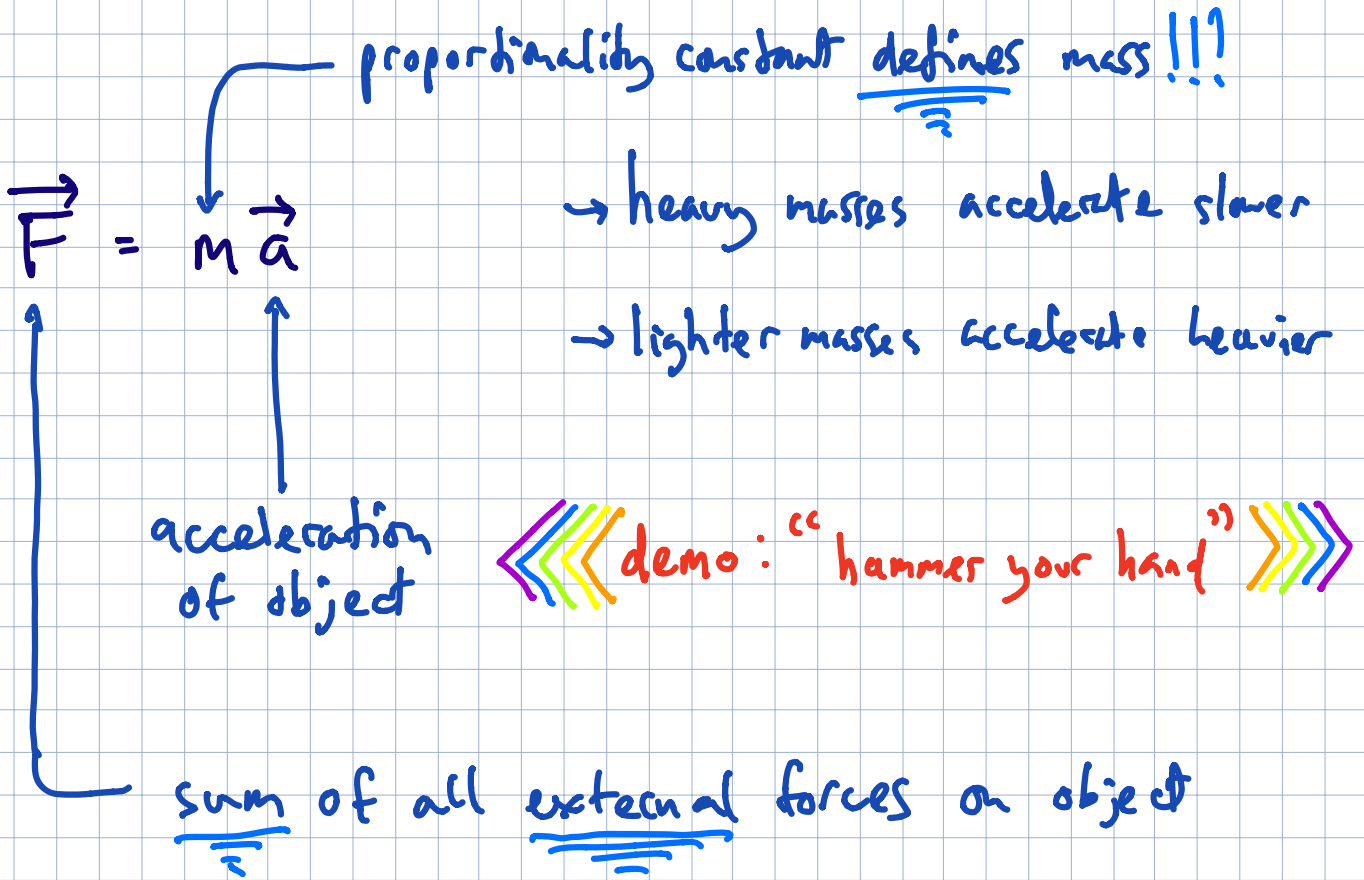 proportionality constant defines mass!!!
F = ma
→ heavy masses accelerate slower
→ lighter masses accelerate heavier
acceleration
of object
demo: "hammer your hand"
sum of all external forces on object